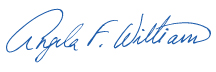 Angela F. William